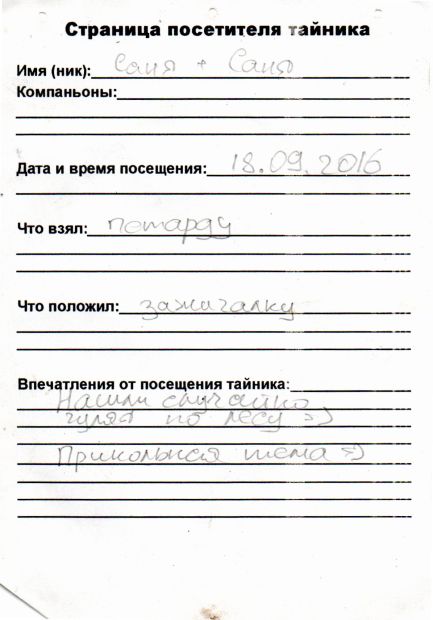 Страница посетителя тайника
Имя (ник): Саня + Саня
Компаньоны:
Дата и время посещения: 18.09.2016
Что взял: петарду
Что положил: зажигалку
Впечатления от посещения тайника:
Нашли случайно
гуляя по лесу =)
Прикольная тема =)